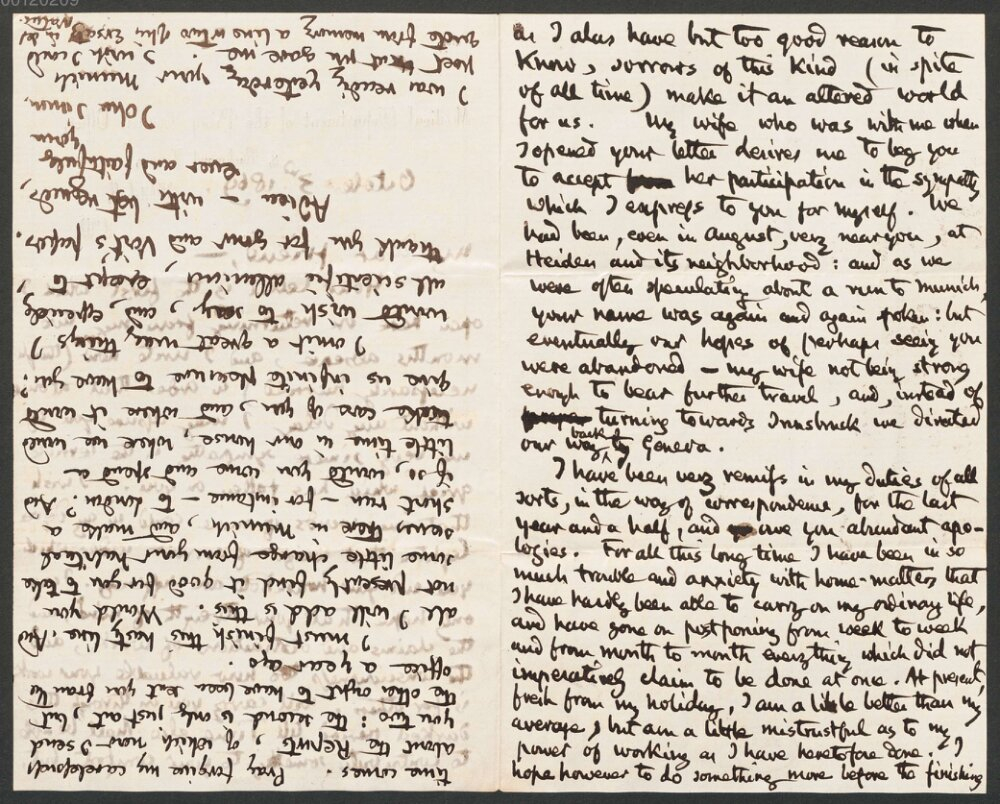 00120209
as I alas have but too good reason to
know, sorrows of this kind (in spite
of all time) make it an altered world
for us. My wife who was with me when
I opened your letter desires me to beg you
to accept her participation in the sympathy
which I express to you for myself. We
had been, even in August, very near you, at
Heiden and its neighborhood: and as we
were often speculating about a run to Munich,
your name was again and again spoken: but
eventually our hopes of perhaps seeing you
were abandoned – my wife not being strong
enough to bear further travel, and, instead of
turning towards Innsbruck we directed
our way back by Geneva.
I have been very remiss in my duties of all
sorts, in the way of correspondence, for the last
year and a half, and owe you abundant apo-
logies. For all this long time I have been in so
much trouble and anxiety with home-matters that
I have hardly been able to carry on my ordinary life,
and have gone on postponing from week to week
and from month to month everything which did not
imperatively claim to be done at once. At present,
fresh from my holiday, I am a little better than my
average, but am a little mistrustful as to my
power of working as I have heretofore done. I
hope however to do something more before the finishing
time comes. Pray forgive my carelessness
about the Reports, of which now I send
you two: the second is only just out, but
the other ought to have been sent you from the
office a year ago.
I must finish this hasty line. And
all I will add is this. Would you
not presently find it good for you to take
some little change from your habitual
scenes there in Munich, and make a
short run – for instance – to London? And
if so, would you come and spend a
little time in our house, where we would
take care of you, and where it would
give us infinite pleasure to have you?
I omit a great many things I
would wish to say, and, especially
all scientific allusions, except to
thank you for your and Voit's papers.
Adieu – with best regards,
ever and faithfully
yours
John Simon.
I was reading yesterday your Munich
poet you gave me. I wish I could
quote from memory a line Ersatz in der
Natur.